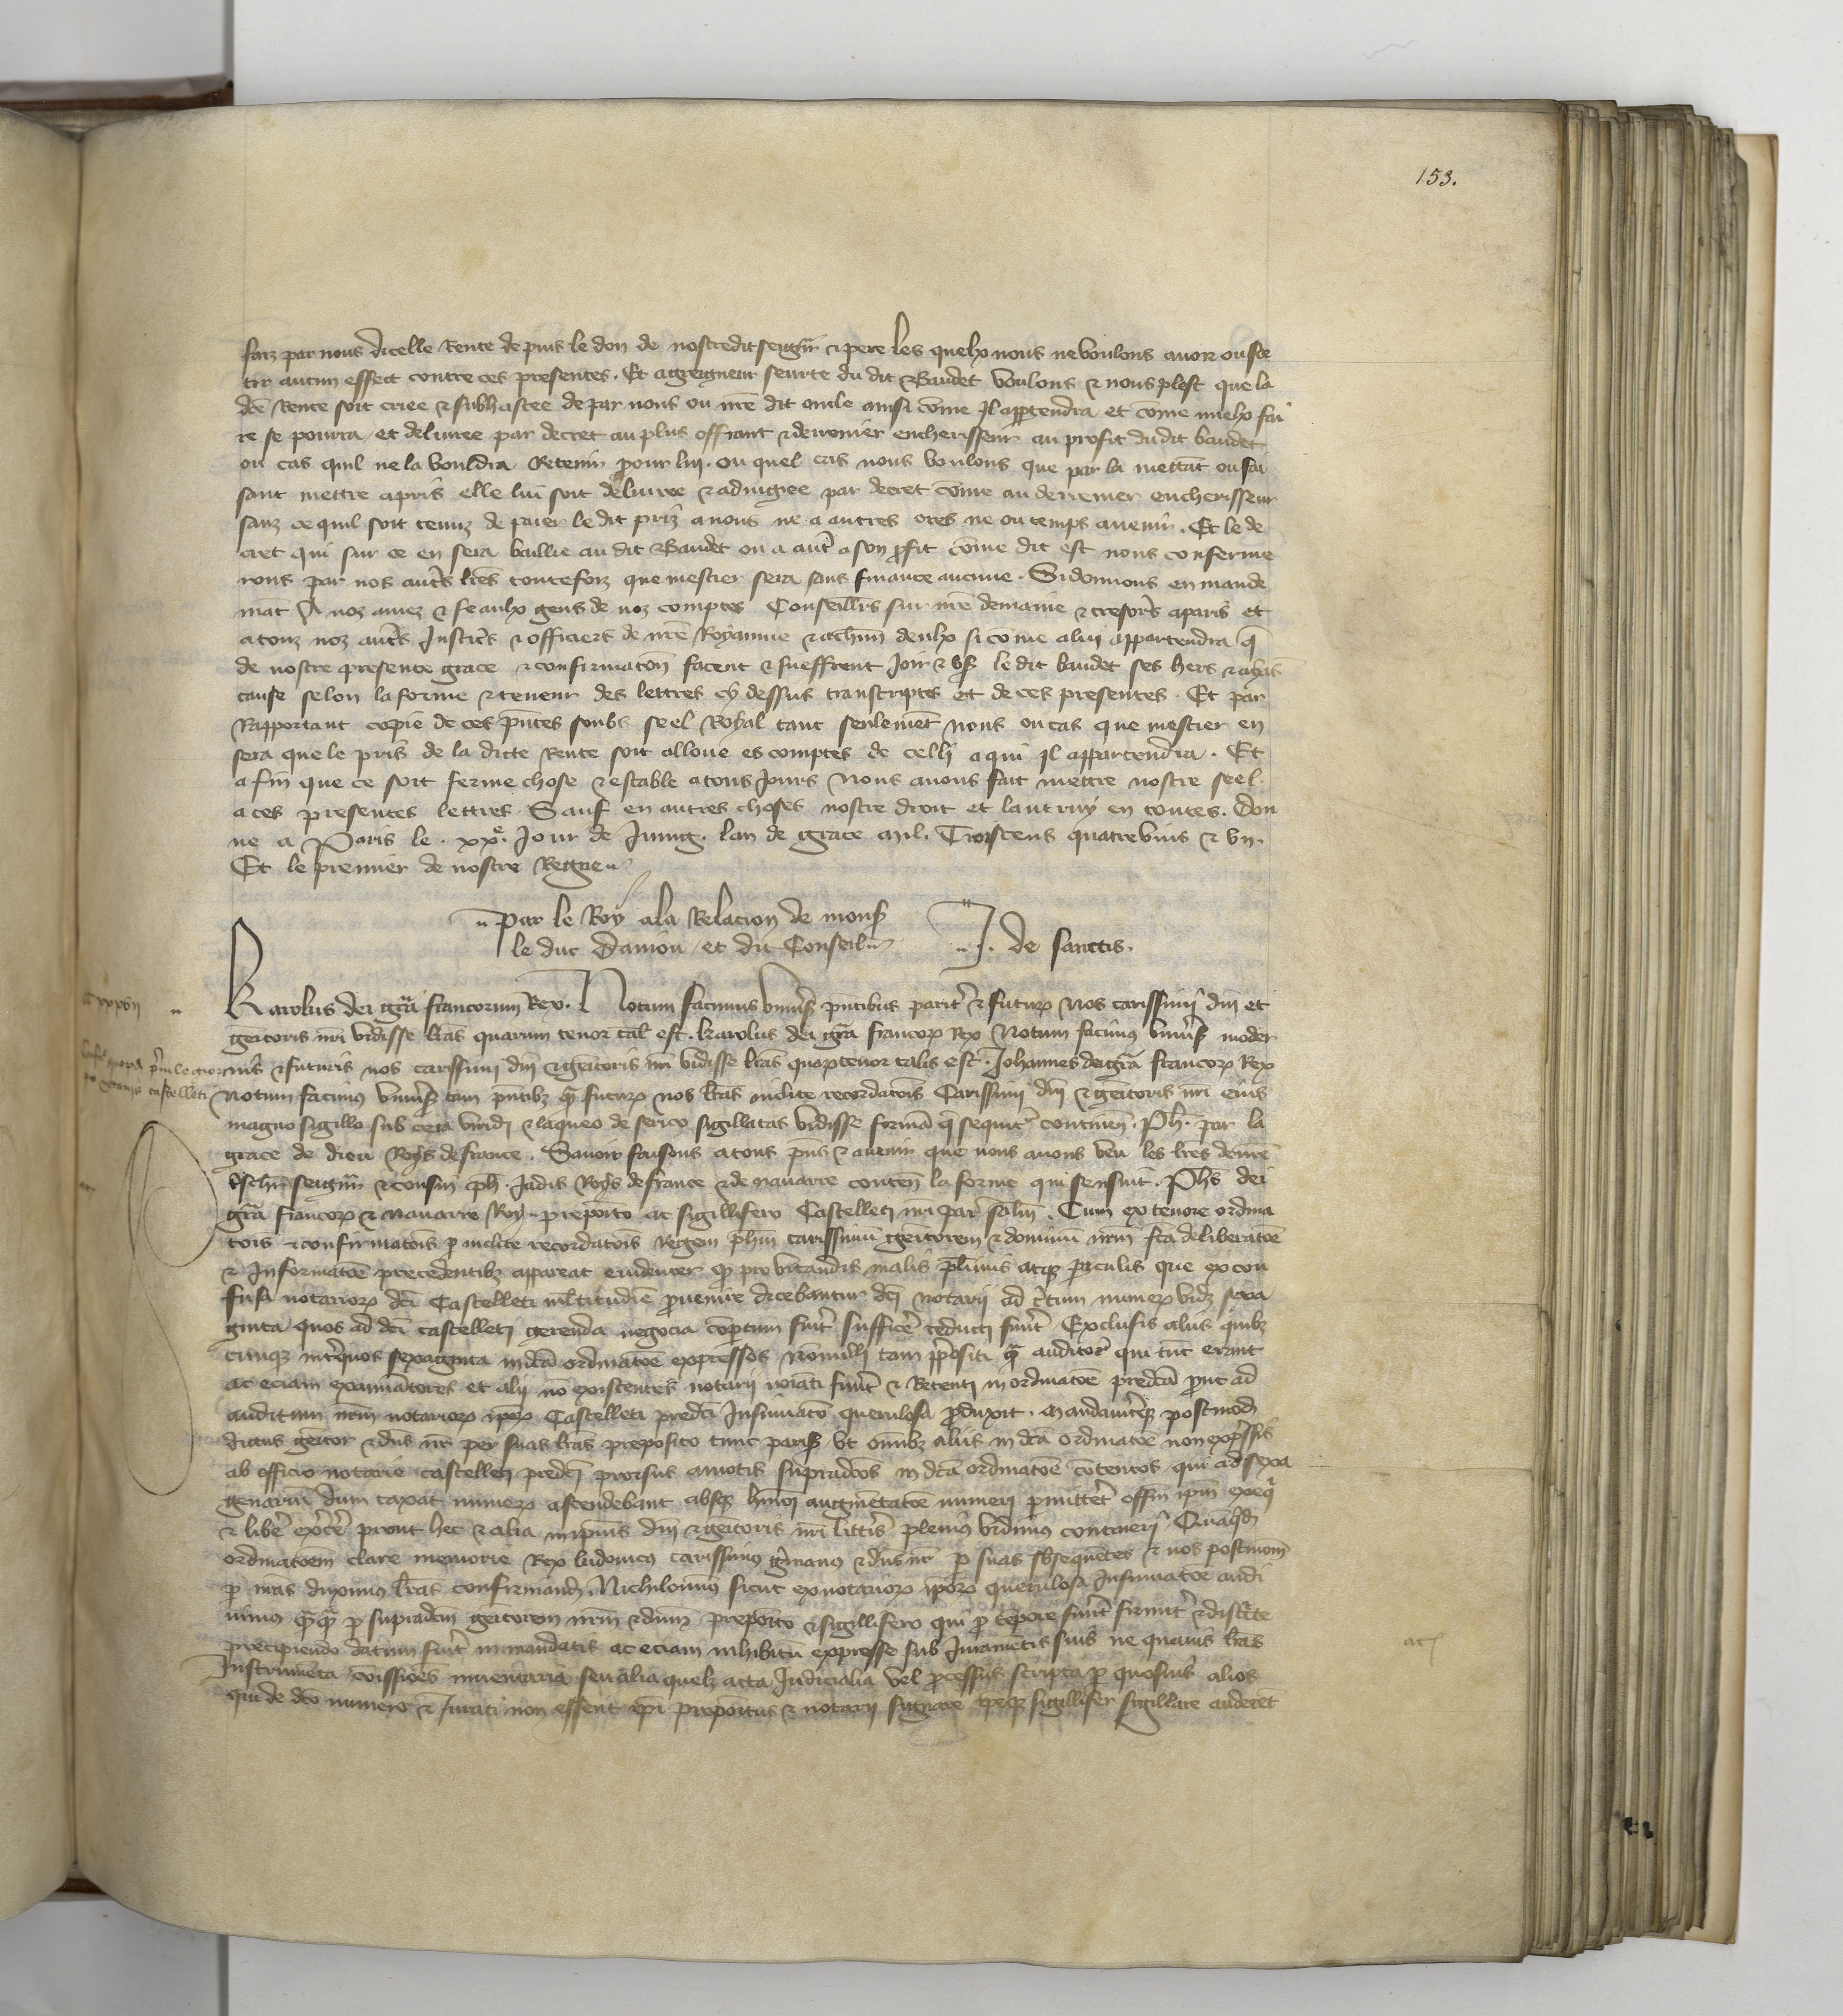 153.
faiz par nous dicelle Rente depuis le don de nostredit seigñr & pere les quelx nous ne voulons auoir ou sor
tir aucun effect contre ces presentes. Et a greigneur seurte du dit Baudet voulons & nous plest que la
dcẽ Rente soit criee & subhastee de par nous ou nrẽ dit oncle ainsi cõme Il appartendra et cõme mielx fai
re se pourra / et deliuree par decret au plus offrant & derrenier encherisseur au profit dudit baudet
ou cas quil ne la vouldra Retenir pour lui. ou quel cas nous voulons que par la mettãt ou fai
sant mettre a pris elle lui soit deliuree & adiugiee par decret cõme au derrenier encherisseur
sanz ce quil soit tenuz de paier le dit priz a nous ne a autres ores ne ou temps auenir. Et le de
cret qui sur ce en sera baillie au dit Baudet ou a autr̃ a son ꝓfit cõme dit est nous conferme
rons par nos autr̃s lrẽs toutefoiz que mestier sera sans finance aucune. Si donnons en mande
mãt A noz amez & feaulx gens de noz comptes Conseill̃rs sur nrẽ demaine & tresor̃s a paris et
a touz noz autr̃s Justicr̃s & officiers de nrẽ Royaume & a chũn deulx si cõme a lui appartendra q̃
de nostre presente grace & confirmatoñ facent & sueffrent Joir & vs̃ le dit baudet ses hers & ayãs
cause selon la forme & teneur des lettres cy dessus transcriptes et de ces presentes. Et par
Rapportant copie de ces p̃ntes soubs seel Royal tant seulemẽt nous ou cas que mestier en
sera que le pris de la dicte Rente soit alloue es comptes de celli a qui Il appartendra. Et
a fin que ce soit ferme chose & estable a tous Jours Nous auons fait mettre nostre seel
a ces presentes lettres. Sauf en autres choses nostre droit et lautruy en toutes. Don
ne a Paris le. xxe. Jour de Juing. lan de grace mil. Troiscens quatrevins & vn.
Et le premier de nostre Regne
Par le Roy a la Relacion de mons̃
le duc Daniou / et du Conseil
J. de sanctis.
Karolus dei grã francorum Rex. Notum facimus vniũs̃ p̃ntibus paritr̃ & futurꝝ Nos carissimi dñi et
geñitoris nrĩ vidisse lrãs quarum tenor tal̃ est. karolus dei grã francoꝝ Rex Notum facimus vniũs̃ moder
nis & futuris nos carissimi dñi & geñitoris nrĩ vidisse lrãs quaꝝ tenor talis est. Johannes dei grã francoꝝ Rex
Notum facimus vniũs̃ tam p̃ntibꝫ q̃ futurꝝ nos lrãs inclite recordatoĩs Carissimi dñi & geñitoris nrĩ eius
magno sigillo sub cera viridi & laqueo de serico sigillatas vidisse formã q̃ sequitr̃ continen̄. Ph̃. par la
grace de dieu Roys de france. Sauoir faisons a tous p̃ns & auenir que nous auons veu les lrẽs de nrẽ
treschr̃ seigñr & cousin ph̃. Jadis Roys de france & de nauarre conten̄ la forme qui sensuit. Phs̃ dei
grã francoꝝ & nauarre Rex preposito ac sigillifero Castelleti nrĩ par̃ sal̃m. Cum ex tenore ordina
tõis & confirmatoĩs ꝑ inclite recordatoĩs Regem ph̃m carissimũ geñitorem & dominũ nrm̃ fcã deliberatõe
& Informatõe precedentibꝫ apareat euidenter qꝫ pro vitandis malis pl̃imis atqꝫ ꝑiculis que ex con
fusa notarioꝝ dcĩ Castelleti ml̃titudiñe ꝓuenire dicebantur dcĩ notarij ad cr̃tum numeꝝ vidꝫ sexa
ginta quos ad dcĩ castelleti gerenda negocia cõpertum fuit̃ sufficer̃ reducti fuer̃t Exclusis aliis quibꝫ
cunqꝫ int̃ quos sexaginta in dcã ordinatõe expressos Nõnulli tam p̃positi q̃ auditor̃ qui tũc erant
ac eciam examinatores et alij nõ existentes notarij noĩati fuer̃t & Retenti in ordinatõe predcã prout ad
auditum nrm̃ notarioꝝ ip̃oꝝ Castelleti predcĩ Insinuatõ querulosa ꝓduxit. Mandauitqꝫ postmod̃
dictus geñitor & dñs nr̃ per suas lrãs preposito tunc paris̃ vt om̃ibꝫ aliis in dcã ordinatõe non exp̃ssis
ab officio notarie castelleti predcĩ prorsus amotis supradcõs in dcã ordinatõe cõtentos qui ad sexa
genariũ dum taxat numeꝝ ascendebant absqꝫ hm̃oĩ augmẽtatõe numeri ꝑmittet̃ offm̃ ip̃m exeq̃
& liber̃ exer̃cer̃ prout hec & alia in ip̃ius dñi & geñitoris nrĩ littr̃is plenius vidimus contineri. Quãqd̃
ordinatõem clare memorie Rex ludouicus carissimus gr̃manus & dñs nr̃ ꝑ suas sbsequentes & nos postmod̃
ꝑ nrãs duximus lrãs confirmand̃. Nichilomin̄ sicut ex notarioꝝ ip̃oꝝ querulosa Insinuatõe audi
uimus q̃q̃ ꝑ supradcm̃ geñitorem nrm̃ & dñum preposito & sigillifero qui ꝑ tẽpore fuer̃t firmit̃ & districte
precipiendo datum fuit̃ in mandatis ac eciam inhibitũ expresse sub Iuramẽtis suis ne quauis lrãs
Instrumẽta cõissiões inuentaria seu alia quelꝫ acta Iudicialia vel ꝓcessus scripta ꝑ quosuis alios
qui de dcõ numero & Jurati non essent ip̃i prepositus & notarij signare ip̃eqꝫ sigillifer sigillare auderet̃